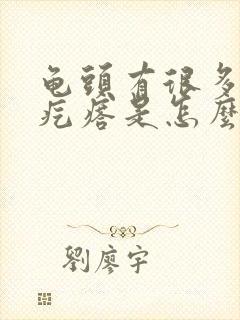 龟頭有很多
疙瘩是怎麼
劉廖宇